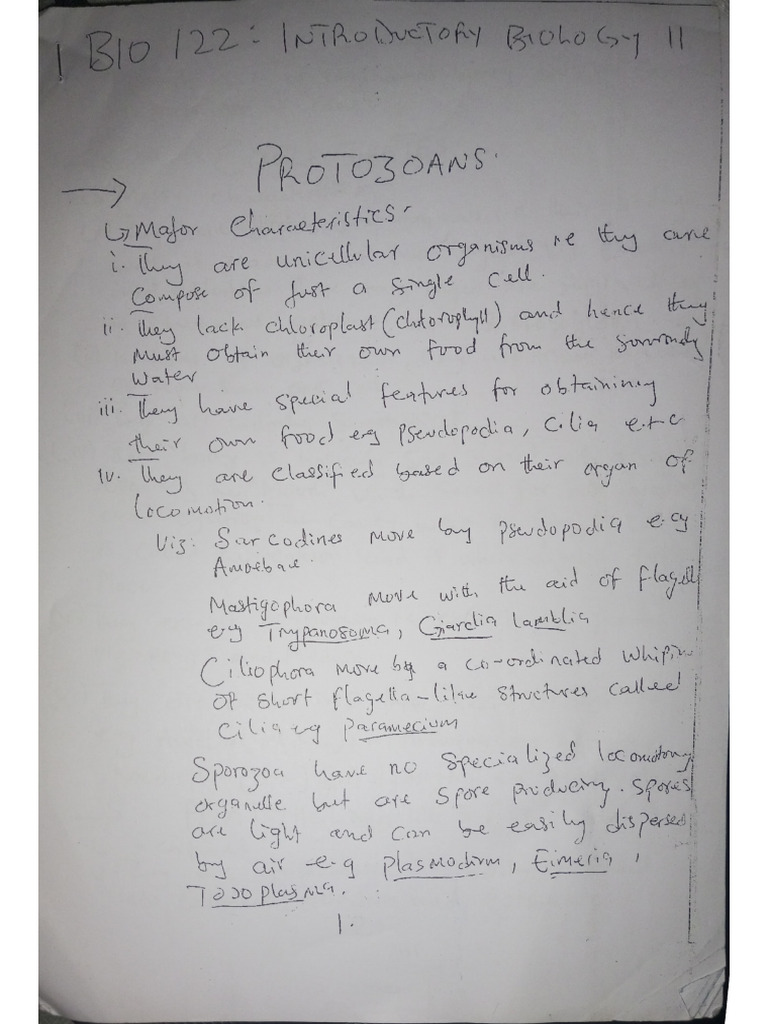 1 BIO 122: INTRODUCTORY BIOLOGY II
PROTOZOANS.
→
↳ Major Characteristics.
i. They are unicellular organisms ie they are
Compose of just a single cell.
ii. They lack chloroplast (chlorophyll) and hence they
Must obtain their own food from the
Water
iii. They have special features for obtaining
their own food eg pseudopodia, Cilia e.t.c
iv. They are classified based on their organ of
locomotion.
Viz: Sarcodines move by pseudopodia e.g
Amoebae.
Mastigophora move with the aid of flagell
e.g Trypanosoma, Giardia lamblia
Ciliophora move by a co-ordinated
of short flagella-like structures called
Cilia eg paramecium
Sporozoa have no specialized locomotory
organelle but are spore producing. Spores
are light and can be easily dispersed
by air e.g plasmodium, Eimeria,
Toxoplasma.
1.